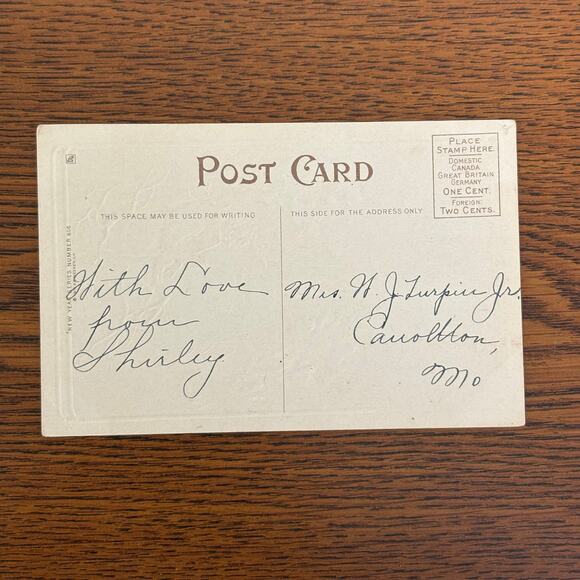 POST CARD
PLACE
STAMP HERE
DOMESTIC
CANADA
GREAT BRITAIN
GERMANY
ONE CENT.
FOREIGN
TWO CENTS.
THIS SPACE MAY BE USED FOR WRITING
THIS SIDE FOR THE ADDRESS ONLY
NEW YEAR SERIES NUMBER
With Love
from
Shirley
Mrs. W. J. Turpin Jr.
Carrollton,
Mo